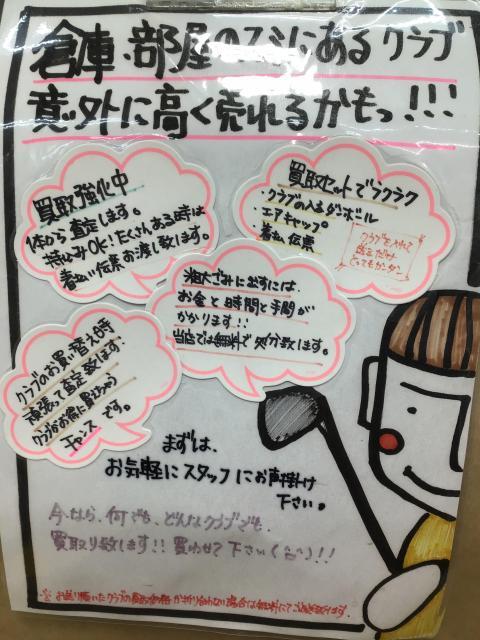 倉庫、部屋のスミにあるクラブ
意外に高く売れるかもっ!!!
買取強化中
1本から査定します。
持込みOK!たくさんある時は
着払い伝票お渡し致します。
買取セットでラクラク
・クラブの入るダンボール
・エアキャップ
・着払い伝票
クラブを入れて
送るだけ
とってもカンタン
粗大ごみに出すには、
お金と時間と手間が
かかります!!
当店では無料で処分致します。
クラブのお買い替え時
頑張って査定致します。
クラブがお得に買えちゃう
チャンスです。
まずは、
お気軽にスタッフにお声掛け
下さい。
今なら、何でも、どんなクラブでも
買取り致します!!買わせて下さい
※お送り頂いたクラブの買取価格が折り合わない場合は無料にてご返送致します。